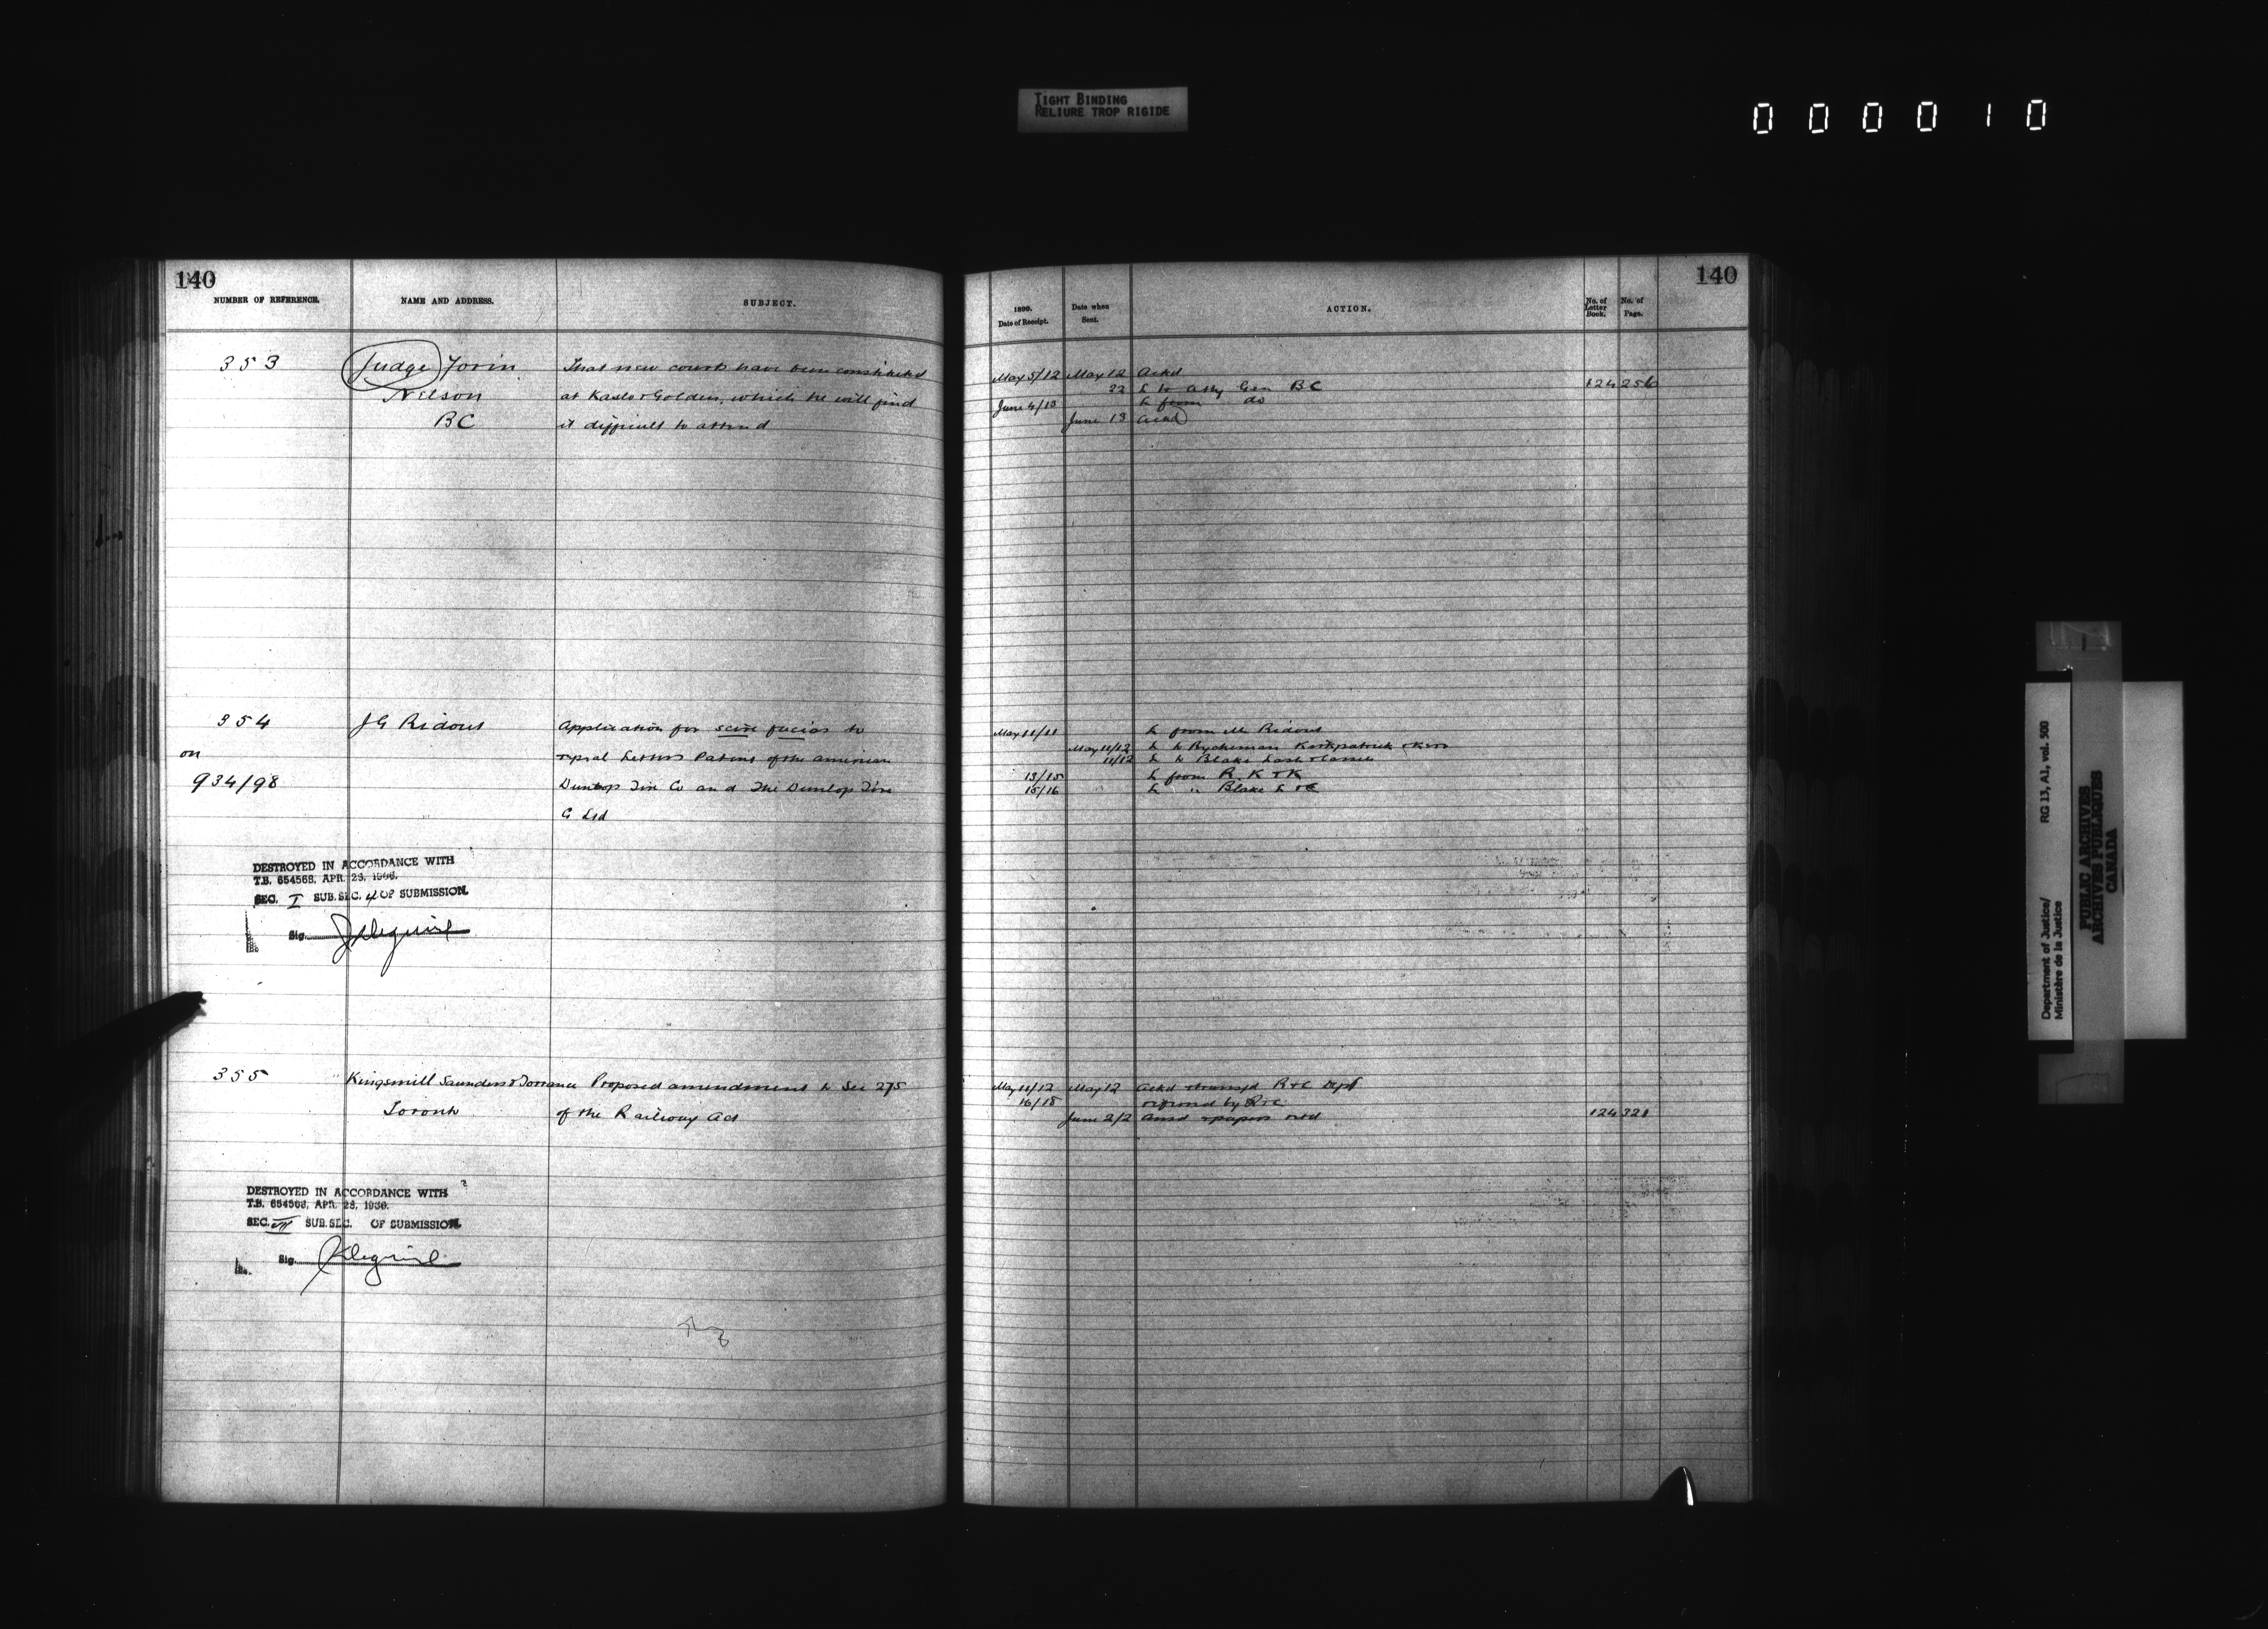 TIGHT BINDING
RELIURE TROP RIGIDE
000010
140
NUMBER OF REFERENCE.
NAME AND ADDRESS.
SUBJECT.
353
Judge Forin
Nelson
BC
That new courts have been constituted
at Kaslo & Golden, which he will find
it difficult to attend
354
on
934/98
J G Ridout
Application for scire facias to
repeal Letters Patent of the American
Dunlop Tire Co and The Dunlop Tire
C Ltd
DESTROYED IN ACCORDANCE WITH
T.B. 654568, APR. 28, 1966.
SEC. I SUB. SEC. 4 OF SUBMISSION.
Sig.
355
Kingsmill Saunders & Torrance
Toronto
Proposed amendment to Sec 275
of the Railway Act
DESTROYED IN ACCORDANCE WITH
T.B. 654568, APR. 28, 1966.
SEC. VII SUB. SEC. OF SUBMISSION.
Sig.
140
1899.
Date of Receipt.
Date when
Sent.
ACTION.
No. of
Letter
Book.
No. of
Page.
May 5/12 May 12 Ackd
22 L to Atty Gen BC 124 256
June 4/13 L from do
June 13 Ackd
May 11/11 L from Mr Ridout
May 11/12 L to Ryckeman Kirkpatrick & Kerr
11/12 L to Blake Lash & Cassels
13/15 L from R. K & K
15/16 L " Blake L & C
May 11/12 May 12 Ackd & transfd R & C Dept
16/18 returned by R & C
June 2/2 Ansd & papers retd 124 321
Department of Justice/
Ministère de la Justice
RG 13, A1, vol. 500
PUBLIC ARCHIVES
ARCHIVES PUBLIQUES
CANADA